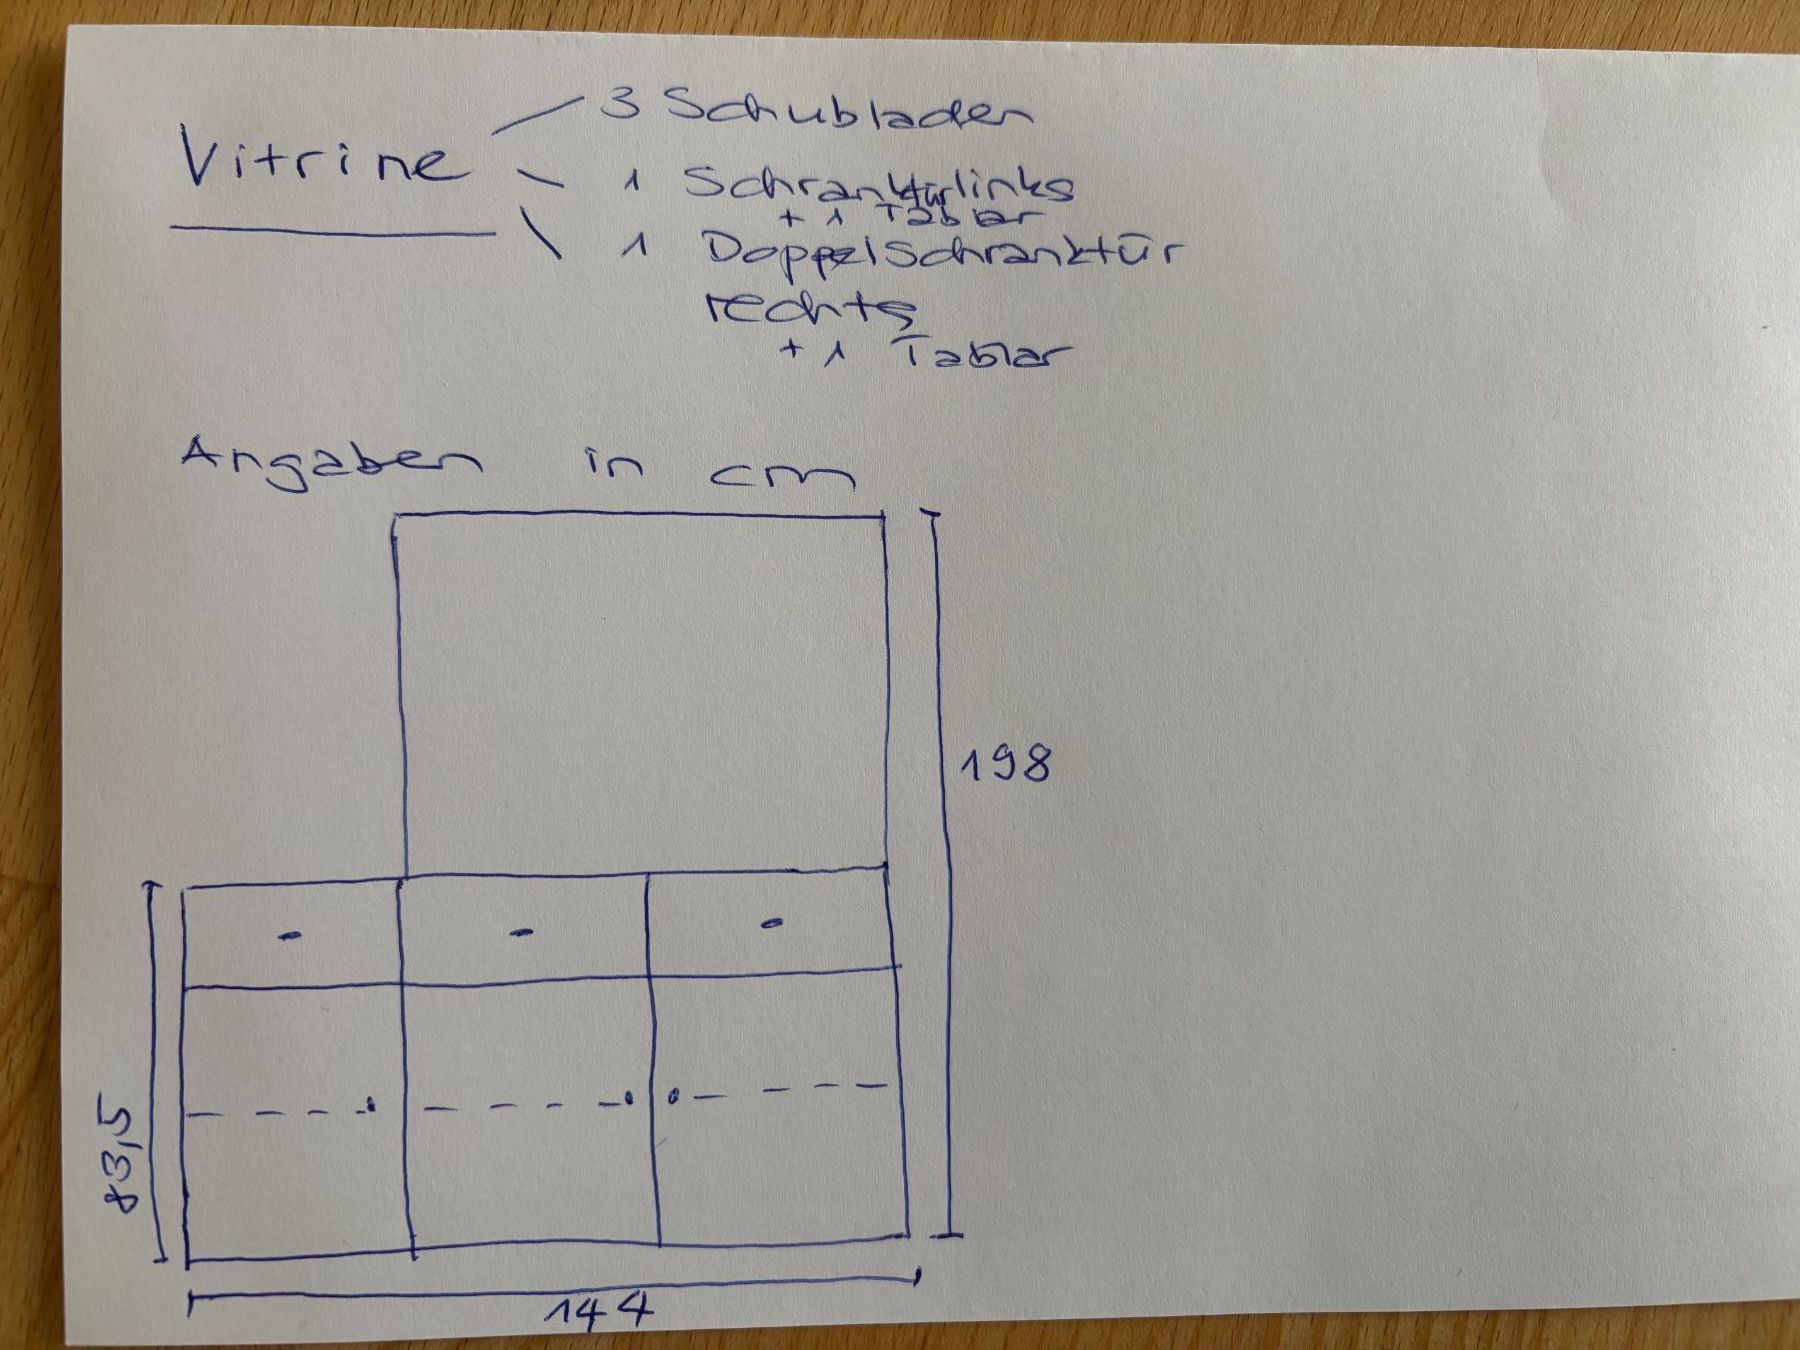 Vitrine
3 Schubladen
1 Schranktür links
+ 1 Tablar
1 Doppelschranktür
rechts
+ 1 Tablar
Angaben in cm
198
83,5
144